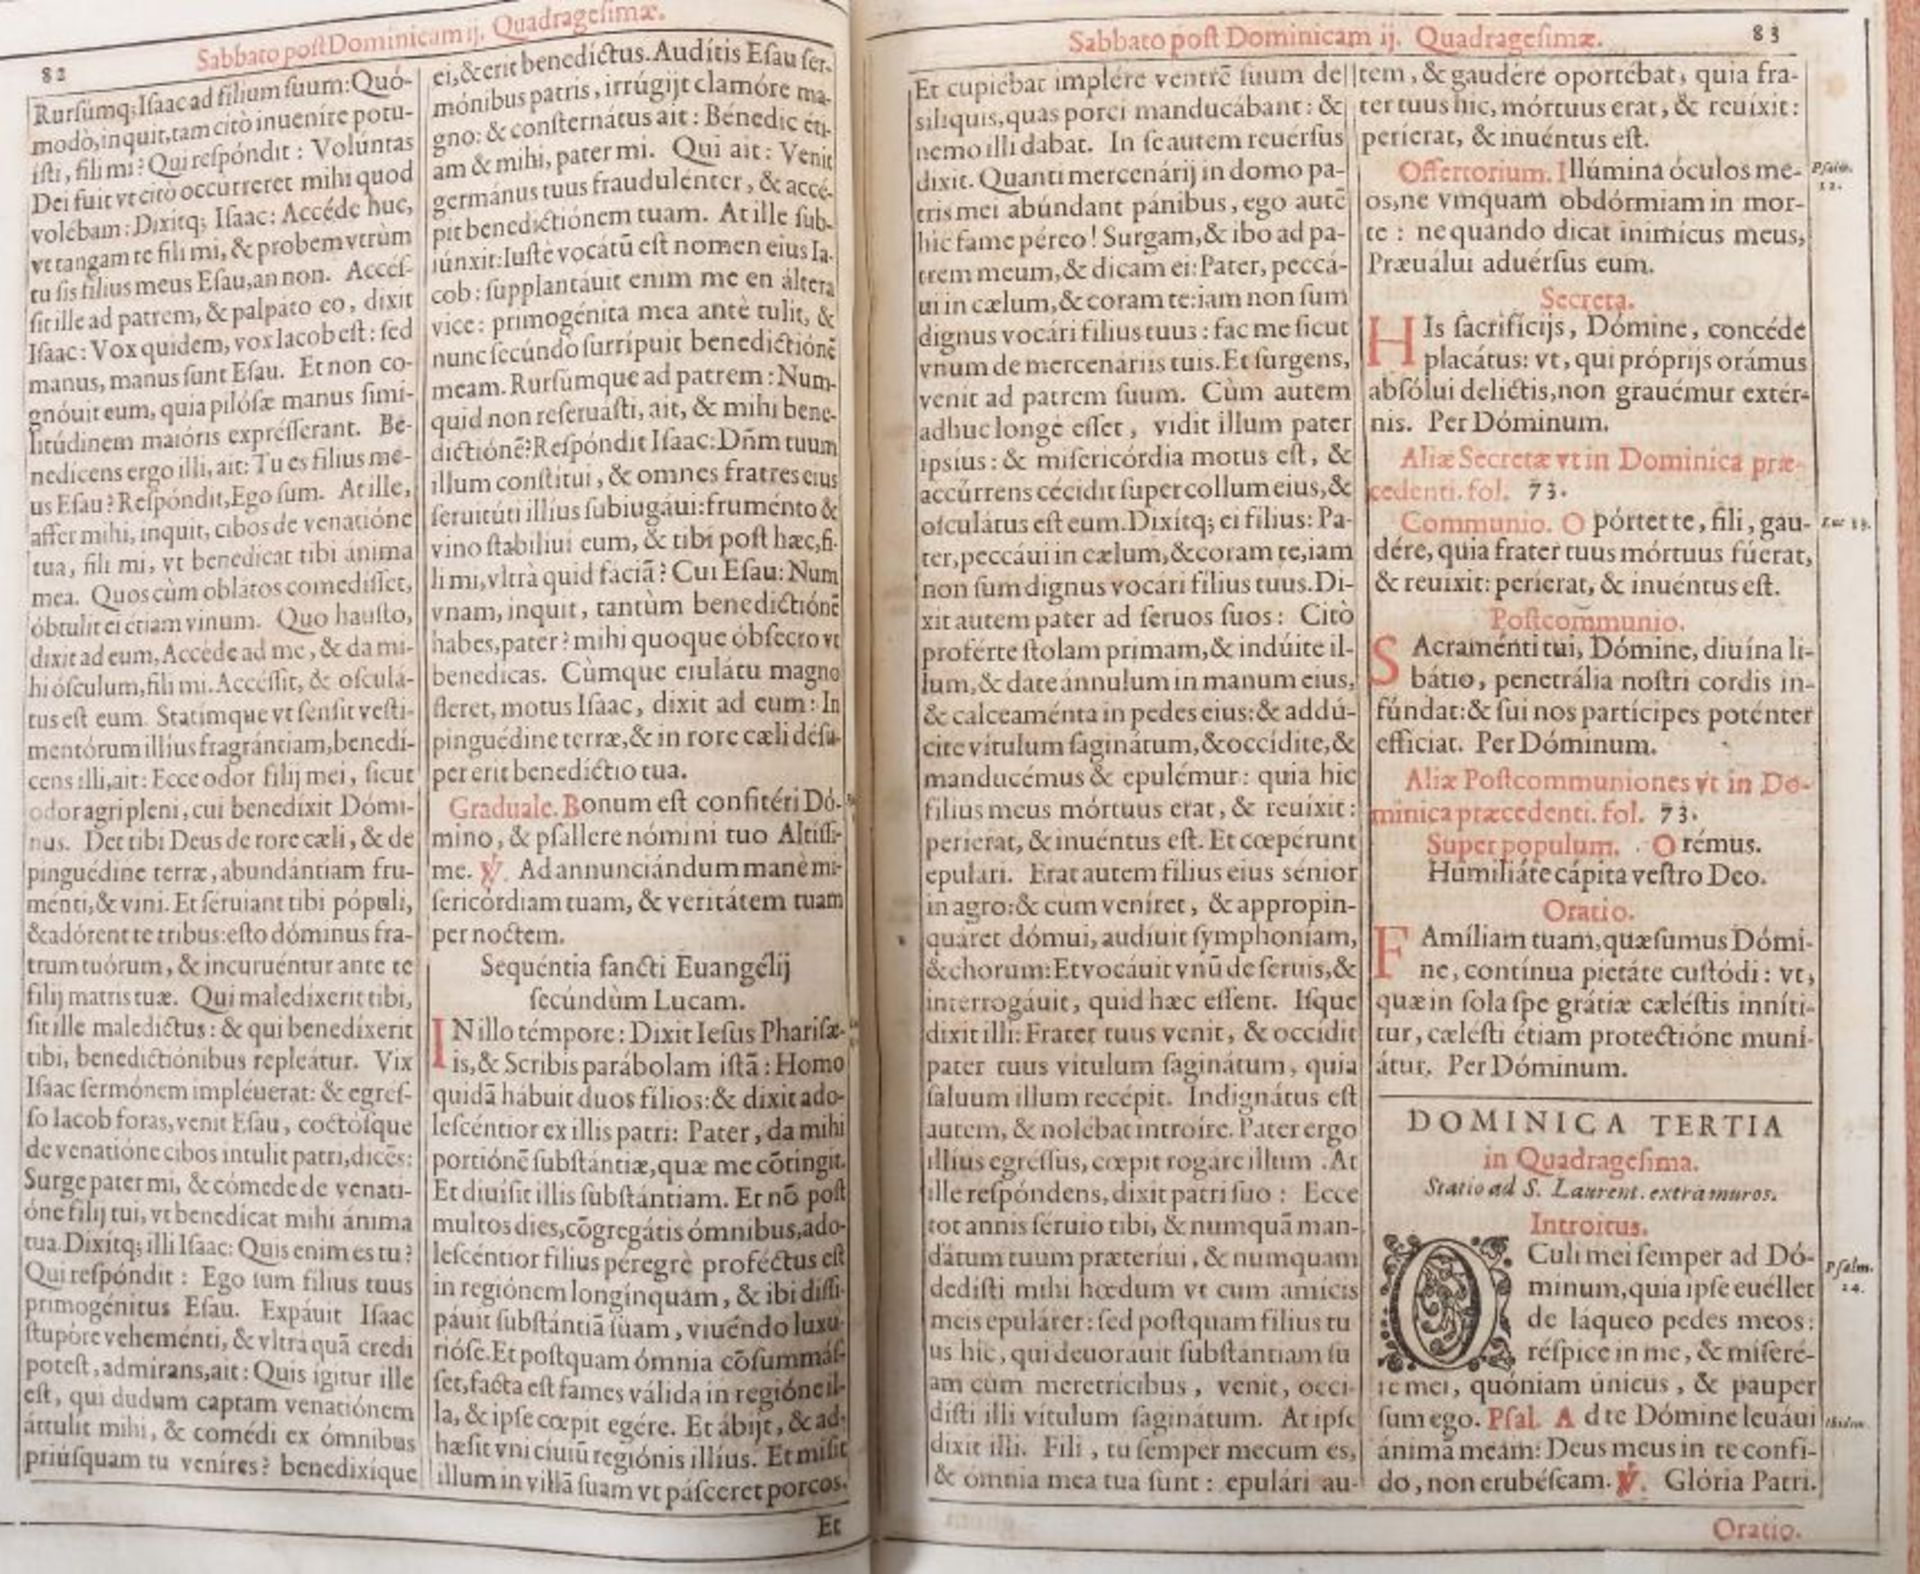 82
Sabbato post Dominicam ij. Quadragesimæ.
Rursúmq; Isaac ad filium suum: Quó-
modò, inquit, tam citò inuenire potu-
isti, fili mi? Qui respóndit: Volúntas
Dei fuit vt citò occurreret mihi quod
volébam: Dixitq; Isaac: Accéde huc,
vt tangam te fili mi, & probem vtrùm
tu sis filius meus Esau, an non. Accés-
sit ille ad patrem, & palpato eo, dixit
Isaac: Vox quidem, vox Iacob est: sed
manus, manus sunt Esau. Et non co-
gnóuit eum, quia pilósæ manus simi-
litúdinem maióris exprésserant. Be-
nedicens ergo illi, ait: Tu es filius me-
us Esau? Respóndit, Ego sum. At ille,
affer mihi, inquit, cibos de venatióne
tua, fili mi, vt benedicat tibi ánima
mea. Quos cùm oblátos comedísset,
óbtulit ei etiam vinum. Quo hausto,
dixit ad eum, Accéde ad me, & da mi-
hi ósculum, fili mi. Accéssit, & osculá-
tus est eum. Statimque vt sensit vesti-
mentórum illíus fragrántiam, benedí-
cens illi, ait: Ecce odor filij mei, sicut
odor agri pleni, cui benedixit Dómi-
nus. Det tibi Deus de rore cæli, & de
pinguédine terræ, abundántiam fru-
ménti, & vini. Et séruiant tibi pópuli,
& adórent te tribus: esto dóminus fra-
trum tuórum, & incuruéntur ante te
filij matris tuæ. Qui maledíxerit tibi,
sit ille maledíctus: & qui benedíxerit
tibi, benedictiónibus repleátur. Vix
Isaac sermónem impléuerat: & egrés-
so Iacob foras, venit Esau, coctósque
de venatióne cibos intulit patri, dicẽs:
Surge pater mi, & cómede de venati-
óne filij tui, vt benedícat mihi ánima
tua. Dixitq; illi Isaac: Quis enim es tu?
Qui respóndit: Ego sum filius tuus
primogénitus Esau. Expáuit Isaac
stupóre veheménti, & vltra quã credi
potest, admirans, ait: Quis igitur ille
est, qui dudum captam venatiónem
áttulit mihi, & comédi ex ómnibus
priúsquam tu veníres? benedixíque
ei, & erit benedíctus. Audítis Esau ser-
mónibus patris, irrúgijt clamóre ma-
gno: & consternátus ait: Bénedic éti-
am & mihi, pater mi. Qui ait: Venit
germánus tuus fraudulénter, & accé-
pit benedictiónem tuam. At ille sub-
iúnxit: Iustè vocátũ est nomen eius Ia-
cob: supplantáuit enim me en áltera
vice: primogénita mea antè tulit, &
nunc secúndo surrípuit benedictiónẽ
meam. Rursúmque ad patrem: Num-
quid non reseruasti, ait, & mihi bene-
dictiónẽ? Respóndit Isaac: Dñm tuum
illum constítui, & omnes fratres eius
seruitúti illíus subiugáui: fruménto &
vino stabiliui eum, & tibi post hæc, fi-
li mi, vltrà quid fáciã? Cui Esau: Num
vnam, inquit, tantùm benedictiónẽ
habes, pater? mihi quoque óbsecro vt
benedícas. Cùmque eiulátu magno
fleret, motus Isaac, dixit ad eum: In
pinguédine terræ, & in rore cæli désu-
per erit benedíctio tua.
Graduale. Bonum est confitéri Dó-
mino, & psallere nómini tuo Altíssi-
me. ℣. Ad annunciándum manè mi-
sericórdiam tuam, & veritátem tuam
per noctem.
Sequéntia sancti Euangélij
secúndùm Lucam.
IN illo témpore: Dixit Iesus Pharisæ-
is, & Scribis parábolam istã: Homo
quidã hábuit duos fílios: & dixit ado-
lescéntior ex illis patri: Pater, da mihi
portiónẽ substántiæ, quæ me cõtingit.
Et diuísit illis substántiam. Et nõ post
multos dies, cõgregátis ómnibus, ado-
lescéntior fílius péregrè proféctus est
in regiónem longínquam, & ibi dissi-
páuit substántiã suam, viuẽdo luxu-
rióse. Et postquam ómnia cõsummás-
set, facta est fames válida in regióne il-
la, & ipse cœpit egére. Et ábijt, & ad-
hæsit vni cíuiũ regiónis illíus. Et misit
illum in villã suam vt pásceret porcos.
Et
Sabbato post Dominicam ij. Quadragesimæ.
83
Et cupiébat implére ventrẽ suum de
síliquis, quas porci manducábant: &
nemo illi dabat. In se autem reuersus
dixit. Quanti mercenárij in domo pa-
tris mei abúndant pánibus, ego autẽ
hic fame péreo! Surgam, & ibo ad pa-
trem meum, & dicam ei: Pater, peccá-
ui in cælum, & coram te: iam non sum
dignus vocári filius tuus: fac me sicut
vnum de mercenáriis tuis. Et surgens,
venit ad patrem suum. Cùm autem
adhuc longè esset, vidit illum pater
ipsíus: & misericórdia motus est, &
accúrrens cécidit super collum eius, &
osculátus est eum. Dixítq; ei filius: Pa-
ter, peccáui in cælum, & coram te, iam
non sum dignus vocári filius tuus. Di-
xit autem pater ad seruos suos: Citò
proférte stolam primam, & indúite il-
lum, & date ánnulum in manum eius,
& calceaménta in pedes eius: & addú-
cite vítulum saginátum, & occídite, &
manducémus & epulémur: quia hic
filius meus mórtuus erat, & reuíxit:
períerat, & inuéntus est. Et cœpérunt
epulari. Erat autem filius eius sénior
in agro: & cum veníret, & appropin-
quáret dómui, audíuit symphoníam,
& chorum: Et vocáuit vnũ de seruis, &
interrogáuit, quid hæc essent. Isque
dixit illi: Frater tuus venit, & occídit
pater tuus vítulum saginátum, quia
saluum illum recépit. Indignátus est
autem, & nolébat introíre. Pater ergo
illíus egréssus, cœpit rogáre illum. At
ille respóndens, dixit patri suo: Ecce
tot annis séruio tibi, & numquã man-
dátum tuum præteríui, & numquam
dedísti mihi hœdum vt cum amícis
meis epulárer: sed postquam filius tu
us hic, qui deuorauit substántiam su
am cum meretrícibus, venit, occi-
disti illi vítulum saginátum. At ipse
dixit illi. Fili, tu semper mecum es,
& ómnia mea tua sunt: epulári au-
tem, & gaudére oportébat, quia fra-
ter tuus hic, mórtuus erat, & reuíxit:
períerat, & inuéntus est.
Offertorium. Illúmina óculos me-
os, ne vmquam obdórmiam in mor-
te: ne quando dicat inimícus meus,
Præuálui aduérsus eum.
Psalm.
12.
Secreta.
HIs sacrifícijs, Dómine, concéde
placátus: vt, qui própríjs orámus
absólui delíctis, non grauémur extér-
nis. Per Dóminum.
Aliæ Secretæ vt in Dominica præ-
cedenti. fol. 73.
Communio. Opórtet te, fili, gau-
dére, quia frater tuus mórtuus fúerat,
& reuixit: períerat, & inuéntus est.
Luc 15.
Postcommunio.
SAcraménti tui, Dómine, diuína li-
bátio, penetrália nostri cordis in-
fúndat: & sui nos partícipes poténter
efficiat. Per Dóminum.
Aliæ Postcommuniones vt in Do-
minica præcedenti. fol. 73.
Super populum. Orémus.
Humiliáte cápita vestro Deo.
Oratio.
FAmíliam tuam, quæsumus Dómi-
ne, contínua pietáte custódi: vt,
quæ in sola spe grátiæ cæléstis inníti-
tur, cælésti étiam protectióne muni-
átur. Per Dóminum.
DOMINICA TERTIA
in Quadragesima.
Statio ad S. Laurent. extra muros.
Introitus.
OCuli mei semper ad Dó-
minum, quia ipse euéllet
de láqueo pedes meos:
réspice in me, & miseré-
re mei, quóniam únicus, & pauper
sum ego. Psal. Ad te Dómine leuáui
ánimã meam: Deus meus in te confí-
do, non erubéscam. ℣. Glória Patri.
Psalm.
24.
Oratio.